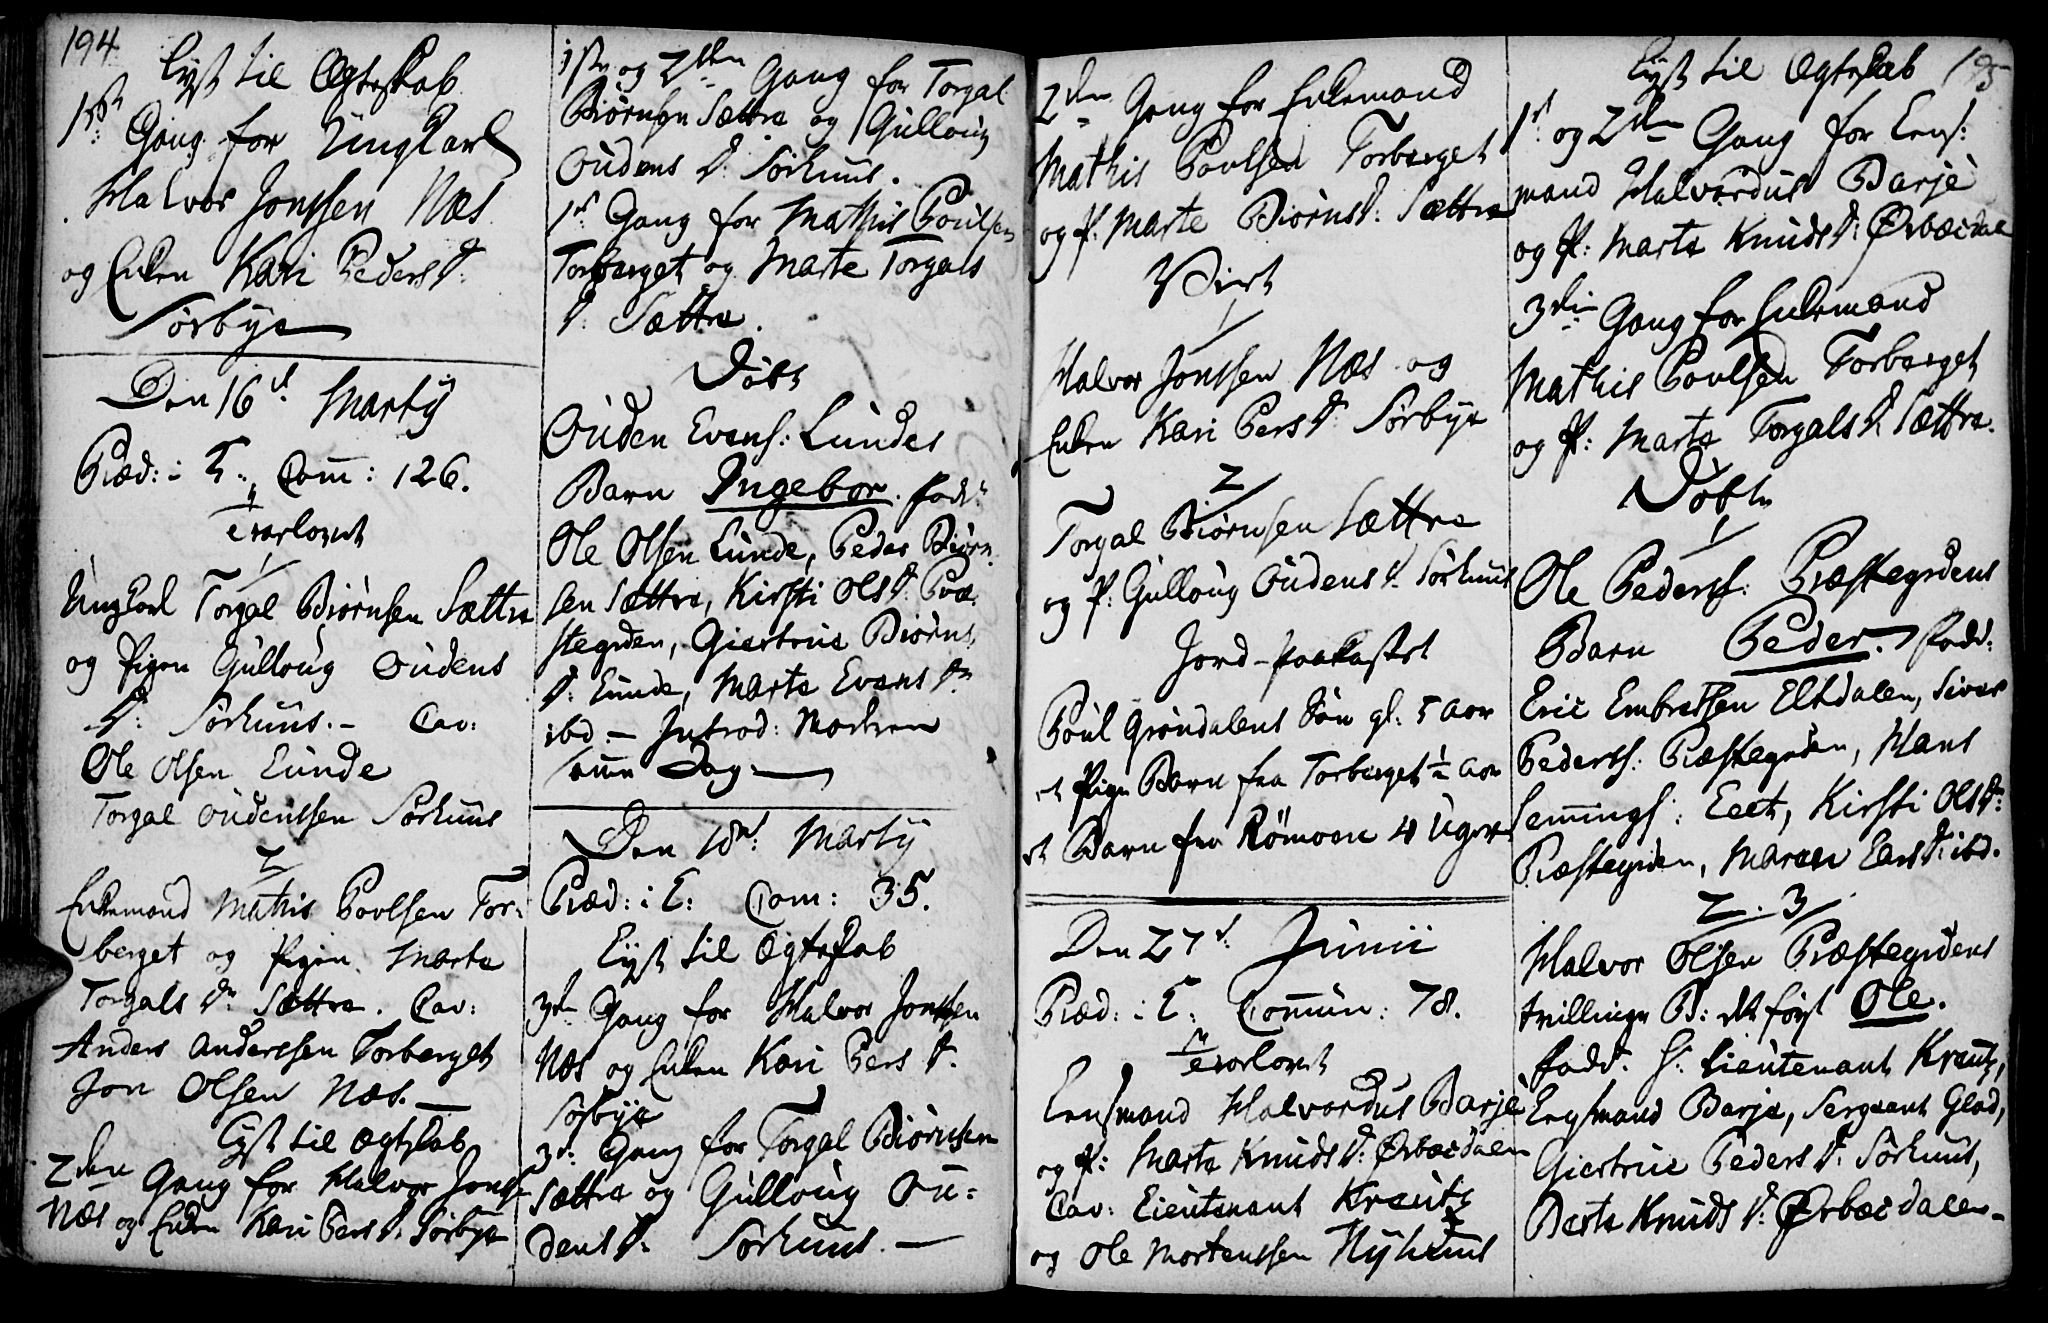 194
Lyst til Ægteskab
1ste Gang for Ungkarl
Halvor Jonssen Næs
og Enken Kari Peders D:
Sørbye
Den 16d: Martij
Præd: i T: Com: 126.
Trorlovet
1
Ungkarl Torgal Biörnsen Sættre
og Pigen Gulloug Oudens
D: Sørhuus. – Cav:
Ole Olsen Lunde
Torgal Oudenssen Sørhuus
2
Enkemand Mathis Povlsen Tor-
berget og Pigen Marte
Torgals Dr Sættre. Cav:
Anders Anderssen Torberget
Jon Olsen Næs. –
Lyst til Ægteskab
2den Gang for Halvor Jonss:
Næs og Enken Kari Pers D: Sørbye
1ste og 2den Gang for Torgal
Biörnsen Sættre og Gulloug
Oudens D: Sørhuus.
1st Gang for Mathis Poulsen
Torberget og Marte Torgals
D: Sættre.
Døbt
Ouden Evens: Lundes
Barn Ingebor. fadd:
Ole Olsen Lunde, Peder Biörn
sen Sættre, Kirsti Ols D: Præ-
stegrden, Giertrue Biörns
D: Lunde, Marte Evens Dr
ibd – Introd: Modren
samme Dag –
Den 18d: Martij
Præd: i T: Com: 35.
Lyst til Ægteskab
3die Gang for Halvor Jonssen
Næs og Enken Kari Pers D:
Sørbye
3die Gang for Torgal Biörnsen
Sættre og Gulloug Ou-
dens D: Sørhuus. –
2den Gang for Enkemand
Mathis Povlsen Torberget
og P: Marte Biörns D: Sættre
Viet
1
Halvor Jonssen Næs og
Enken Kari Pers D: Sørbye
2
Torgal Biörnsen Sættre
og P: Gulloug Oudens D: Sörhuus
Jord-paakastet
Poul Gröndalens Sön gl: 5 Aar
et Pige Barn fra Torberget ½ Aar
et Barn fra Römoen 4 Uger
Den 27d: Junii
Præd: i T: Commun: 78.
Trorlovet
Lensmand Halvordus Barje
og P: Marte Knuds D: Ørbæcdalen
Cav: Lieutenant Krautz
og Ole Mortenssen Nyhuus
Lyst til Ægteskab 195
1st og 2den Gang for Lens:
mand Halvordus Barje
og P: Marte Knuds D: Ørbæcdal
3die Gang for Enkemand
Mathis Povlsen Torberget
og P: Marte Torgals D: Sættre.
Døbte
1
Ole Pederss: Præstegrdens
Barn Peder. fadd:
Eric Embretsen Eltdalen, Siver
Pederss: Præstegrden, Hans
Semmings: Leet, Kirsti Ols Dr:
Præstegrden, Maren Lars D: ibd.
2. 3
Halvor Olsen Præstegrdens
tvillinge B: det först Ole.
fadd: Hr: Lieutenant Krautz,
Lensmand Barje, Sergeant Glad,
Giertrue Peders D: Sørhuus,
Berte Knuds D: Ørbæcdalen –